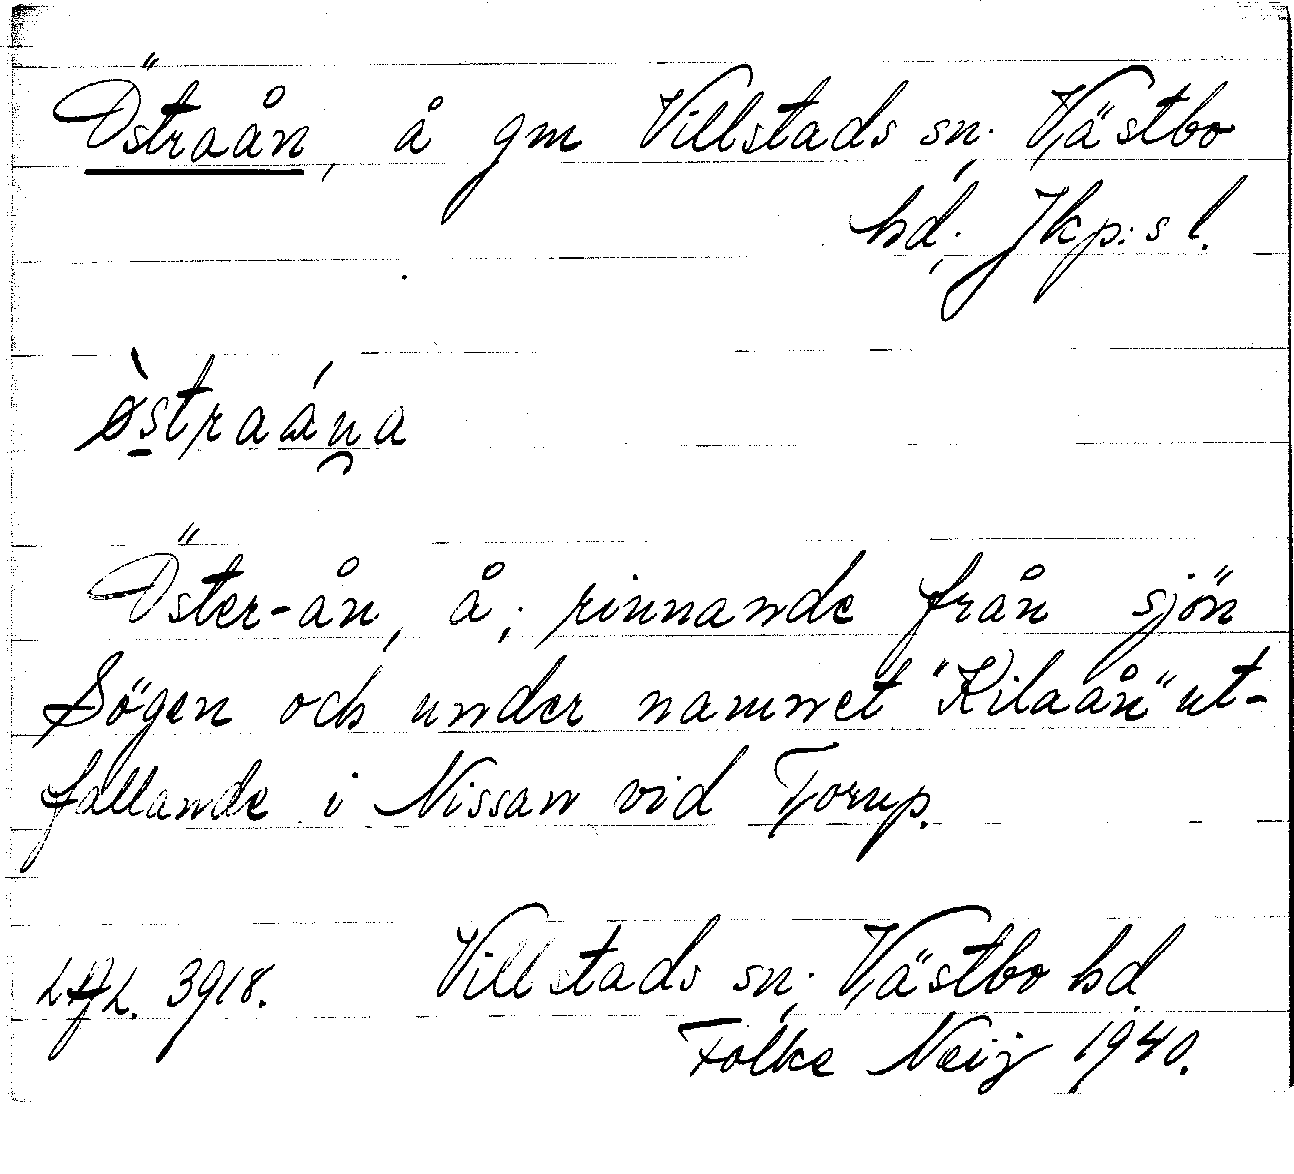 Östraån, å gm Villstads sn; Västbo
hd; Jkp:s l.
ø̀straána
Öster-ån, å; rinnande från sjön
Sögen och under namnet "Kilaån" ut-
fallande i Nissan vid Torup.
3918. Villstads sn; Västbo hd
Folke Neij 1940.